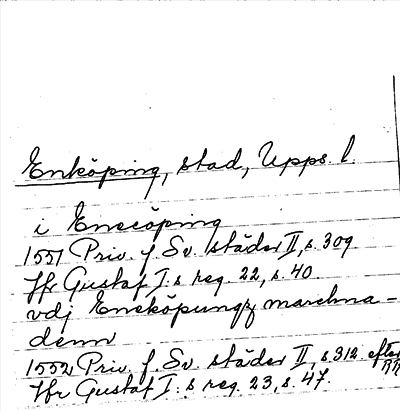 Enköping, stad, Upps. l.
i Enecöping
1551 Priv. f. Sv. städer II, s. 309
Jfr Gustaf I:s reg. 22, s. 40
vdj Eneköpungz marchna-
denn
1552 Priv. f. Sv. städer II, s. 312 efter RR
Jfr Gustaf I:s reg. 23, s. 47.